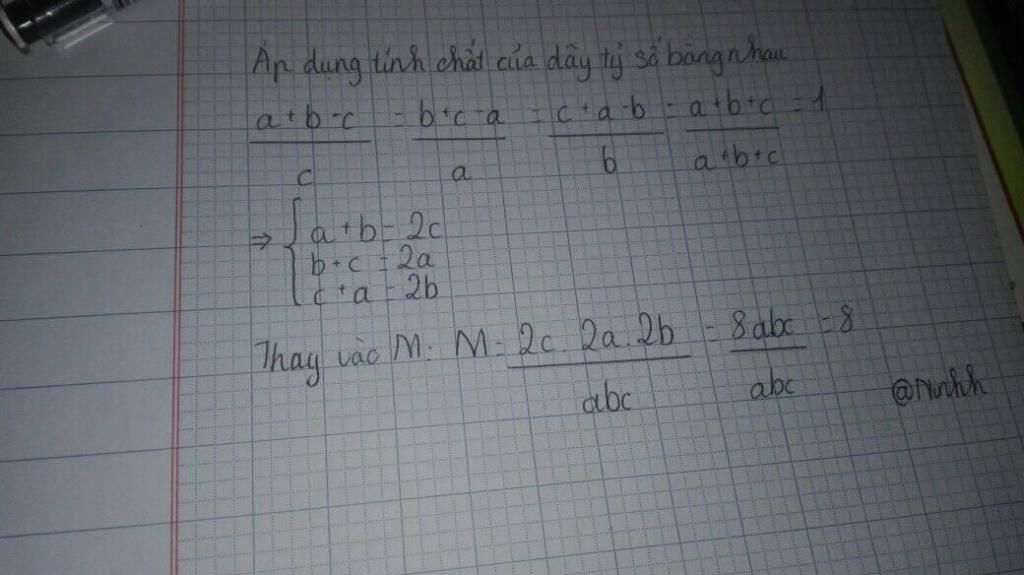 Áp dụng tính chất của dãy tỷ số bằng nhau
\frac{a+b-c}{c} = \frac{b+c-a}{a} = \frac{c+a-b}{b} = \frac{a+b+c}{a+b+c} = 1
⇒ { a+b = 2c
b+c = 2a
c+a = 2b
Thay vào M: M = \frac{2c.2a.2b}{abc} = \frac{8abc}{abc} = 8